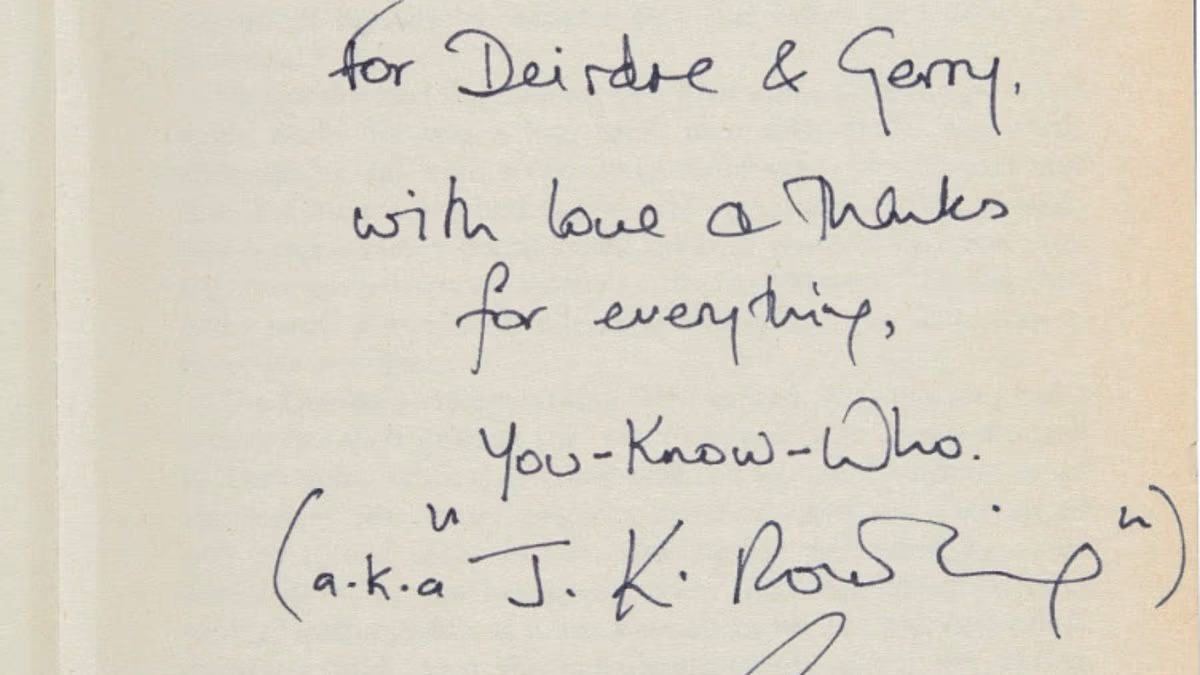 for Deirdre & Gerry,
with love & thanks
for everything,
You-Know-Who.
(a.k.a "J. K. Rowling")